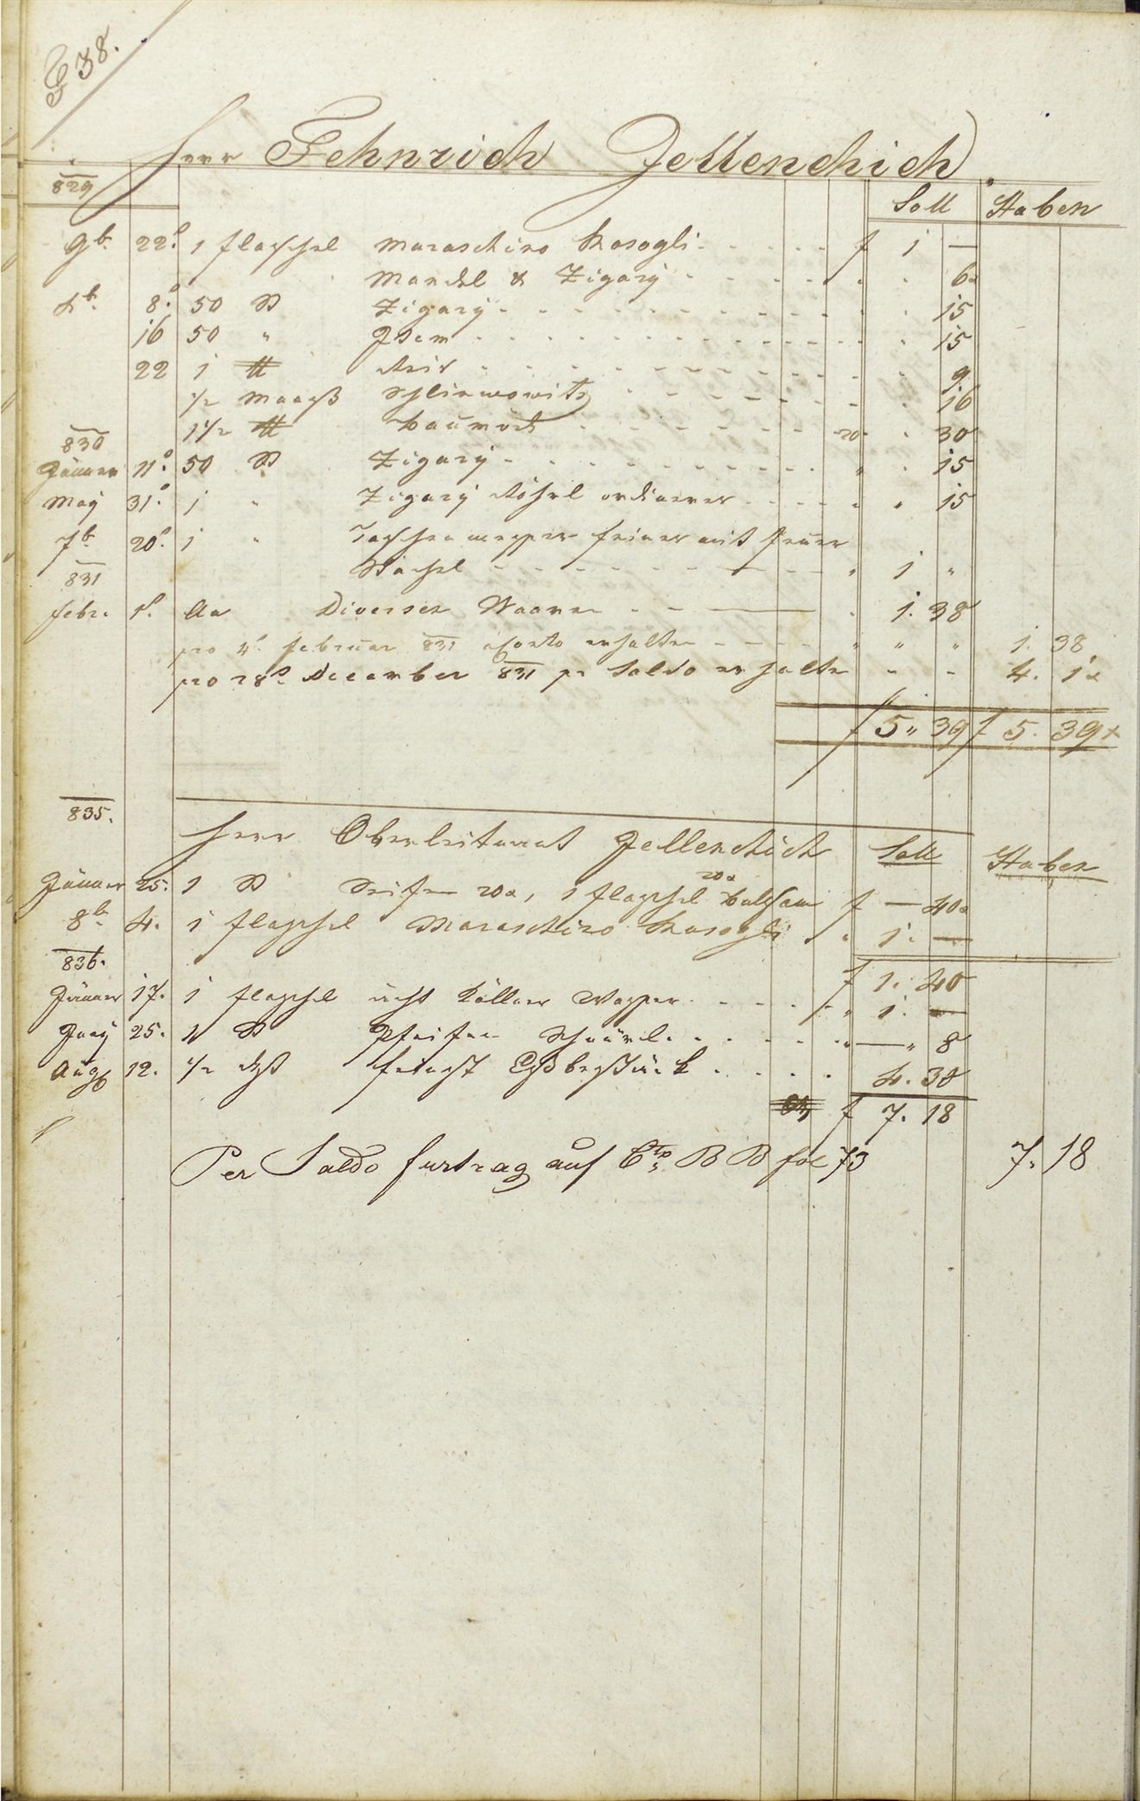 38.
Herr Fehnrich Jellenchich
829
Soll Haben
9b. 22. 1 flaschel Maraschino Rosogli f 1 —
Mandel & Zigary 6
8. 50 St Zigary 15
16 50 " Idem 15
22 1 ℔ Reis 9
1/2 Maaß Schliwowitz 16
1 1/2 ℔ Baumöl 20 30
830
Jänner 11. 50 St Zigary " 15
May 31. 1 " Zigary Röhrl ordinerer " 15
7b. 20. 1 " Taschen messer feiner mit
Stachel " 1 "
831
Febr. 1. An Diversen Waaren 1. 38
pro 4. Februar 831 aConto erhalten " " " 1. 38
pro 28. December 831 pr Saldo erhalten - - 4. 1x
f 5 " 39 f 5. 39x
835.
Herr Oberleitenant Jellenchich Soll Haben
Jänner 25. 1 St Seifen 20x, 1 flaschel 20x Balsam f — 40x
8b. 4. 1 flaschel Maraschino Rosogli " 1. —
f 1. 40
836.
Jänner 17. 1 flaschel Köllner Wasser " 1. —
25. St Pfeifen Schnürl " — " 8
Aug 12. 1/2 feinst 4. 30
f 7. 18
Per Saldo furtrag auf Cto. B B fol 73 7. 18